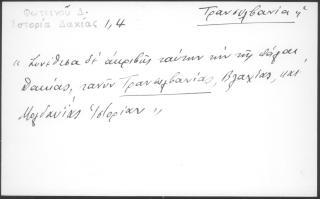 Φωτεινοῦ Δ.
Ἱστορία Δακίας 1,4
Τρανσυλβανία
" Συνέθεσα δ' ἀκριβῶς ταύτην τὴν τῆς πάλαι
Δακίας, τανῦν Τρανσυλβανίας, Βλαχίας, καὶ
Μολδαυίας Ἱστορίαν "